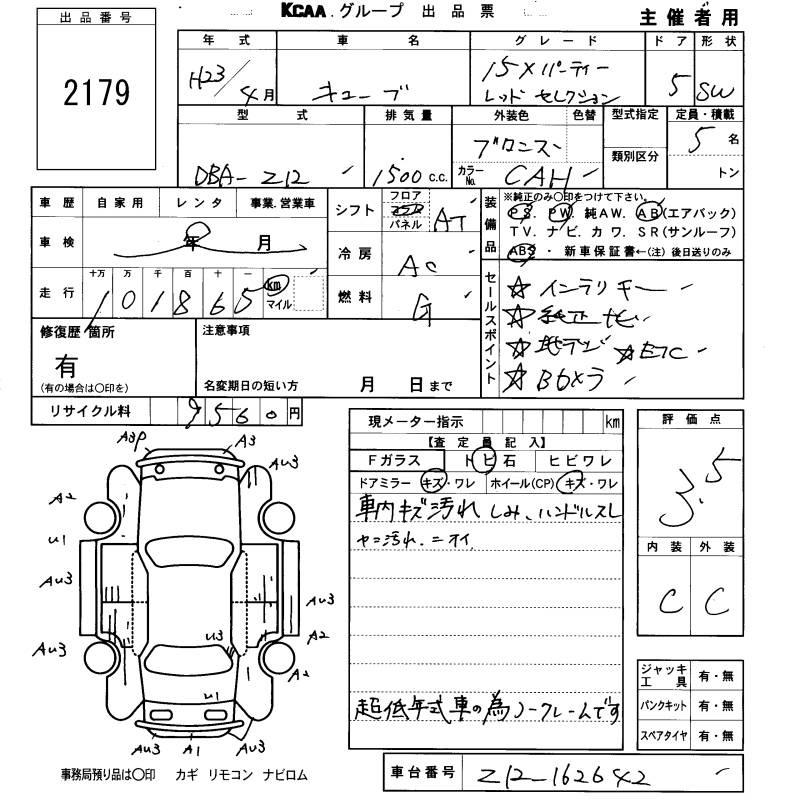 出品番号
2179
KCAA.グループ 出品票
主催者用
年式 車名 グレード ドア 形状
H23/4月 キューブ 15Xパーティー レッドセレクション 5 SW
型式 排気量 外装色 色替 型式指定 定員・積載
DBA-Z12 1500c.c. ブロンズ 5名
カラーNo. CAH 類別区分 トン
車歴 自家用 レンタ 事業.営業車
車検 年 月
走行 十万 万 千 百 十 一
101865 km マイル
シフト フロア コラム パネル AT
冷房 AC
燃料 G
装備品
※純正のみ○印をつけて下さい。
PS. PW. 純AW. AB(エアバック)
TV. ナビ. カワ. SR(サンルーフ)
ABS・新車保証書←(注)後日送りのみ
セールスポイント
☆インテリキー
☆純正ナビ
☆地デジ ☆ETC
☆Bカメラ
修復歴 箇所
有
(有の場合は○印を)
注意事項
名変期日の短い方 月 日まで
リサイクル料 9560円
現メーター指示 km
【査定員記入】
Fガラス トビ石 ヒビワレ
ドアミラー キズ・ワレ ホイール(CP) キズ・ワレ
車内キズ汚れ しみ、ハンドルスレ
ヤニ汚れ.ニオイ
超低年式車の為ノークレームです
評価点
3.5
内装 外装
C C
ジャッキ工具 有・無
パンクキット 有・無
スペアタイヤ 有・無
A3P A3
AU3
A2
U1
AU3
AU3
A2
AU3
U3
A2
U1
AU3 A1 AU3
事務局預り品は○印 カギ リモコン ナビロム
車台番号 Z12-162642